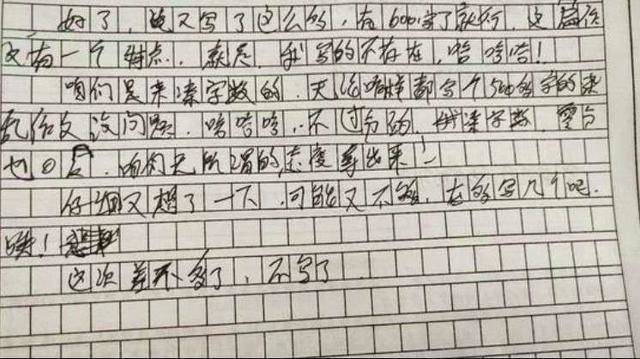 好了,也又写了这么多,有600字了就行,这篇作
文有一个特点,就是,我写的不存在,哈哈哈!
咱们是来凑字数的,无论啥样都写个500多字的来
作文没问题,哈哈哈,不过分的,凑字数,零分
也,咱们无所谓的态度拿出来!
仔细又想了一下,可能又不够,在多写几个吧.
唉!
这次差不多了,不写了